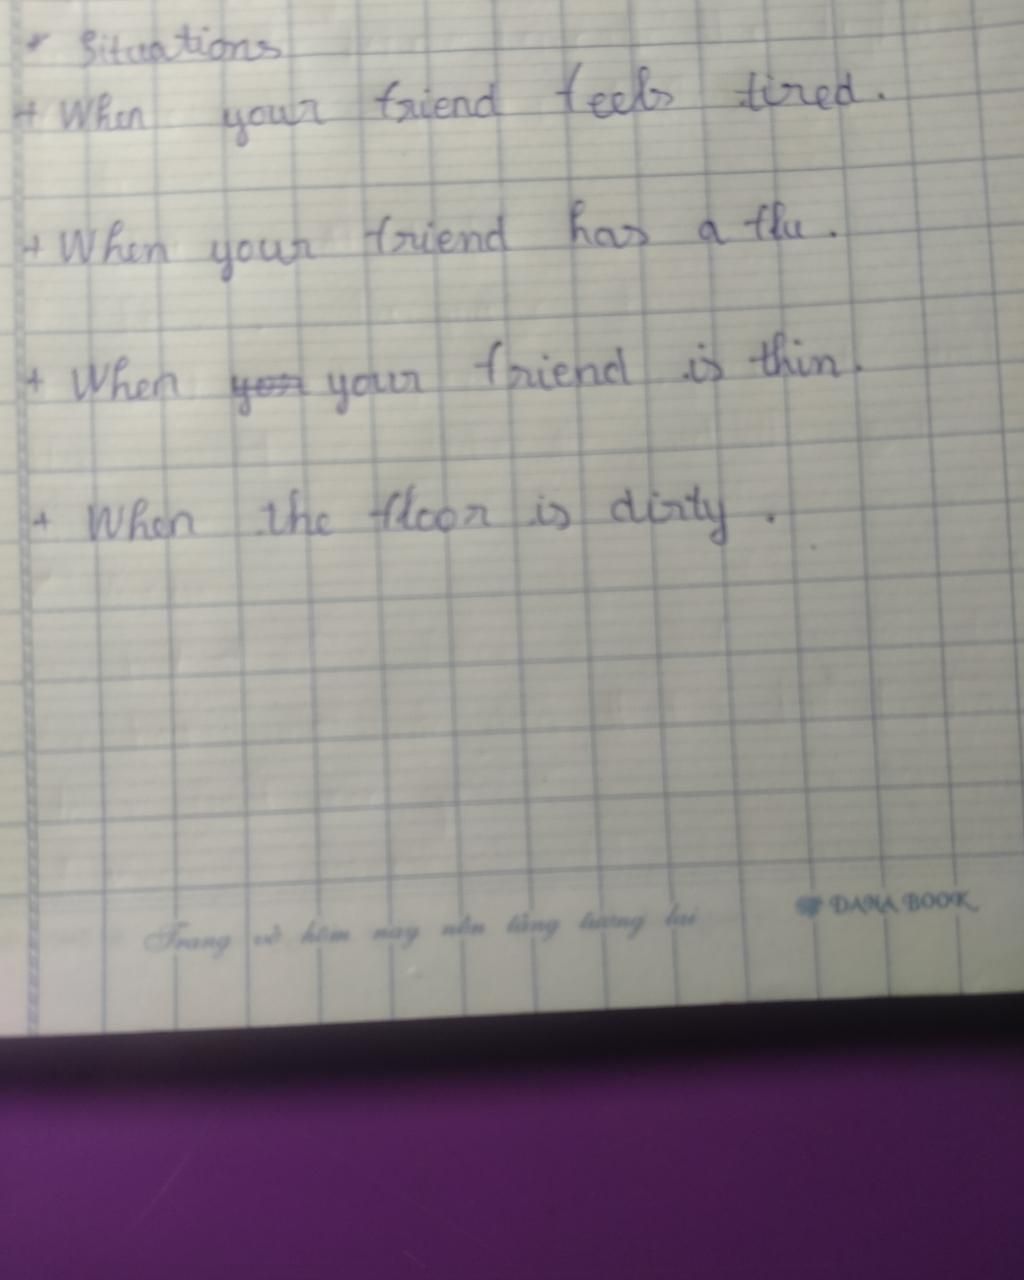 * Situations
+ When your friend feels tired.
+ When your friend has a flu.
+ When you your friend is thin.
+ When the floor is dirty.
Trang vở hôm nay nền tảng tương lai
DANA BOOK